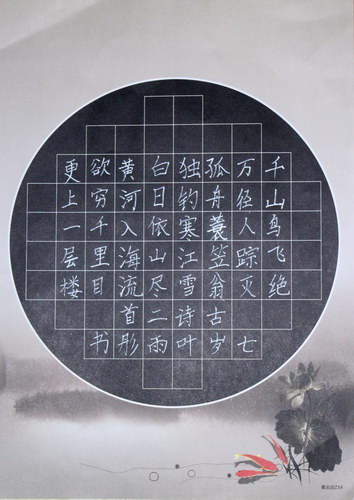 千山鸟飞绝
万径人踪灭
孤舟蓑笠翁
独钓寒江雪
白日依山尽
黄河入海流
欲穷千里目
更上一层楼
古诗二首
七岁叶雨彤书